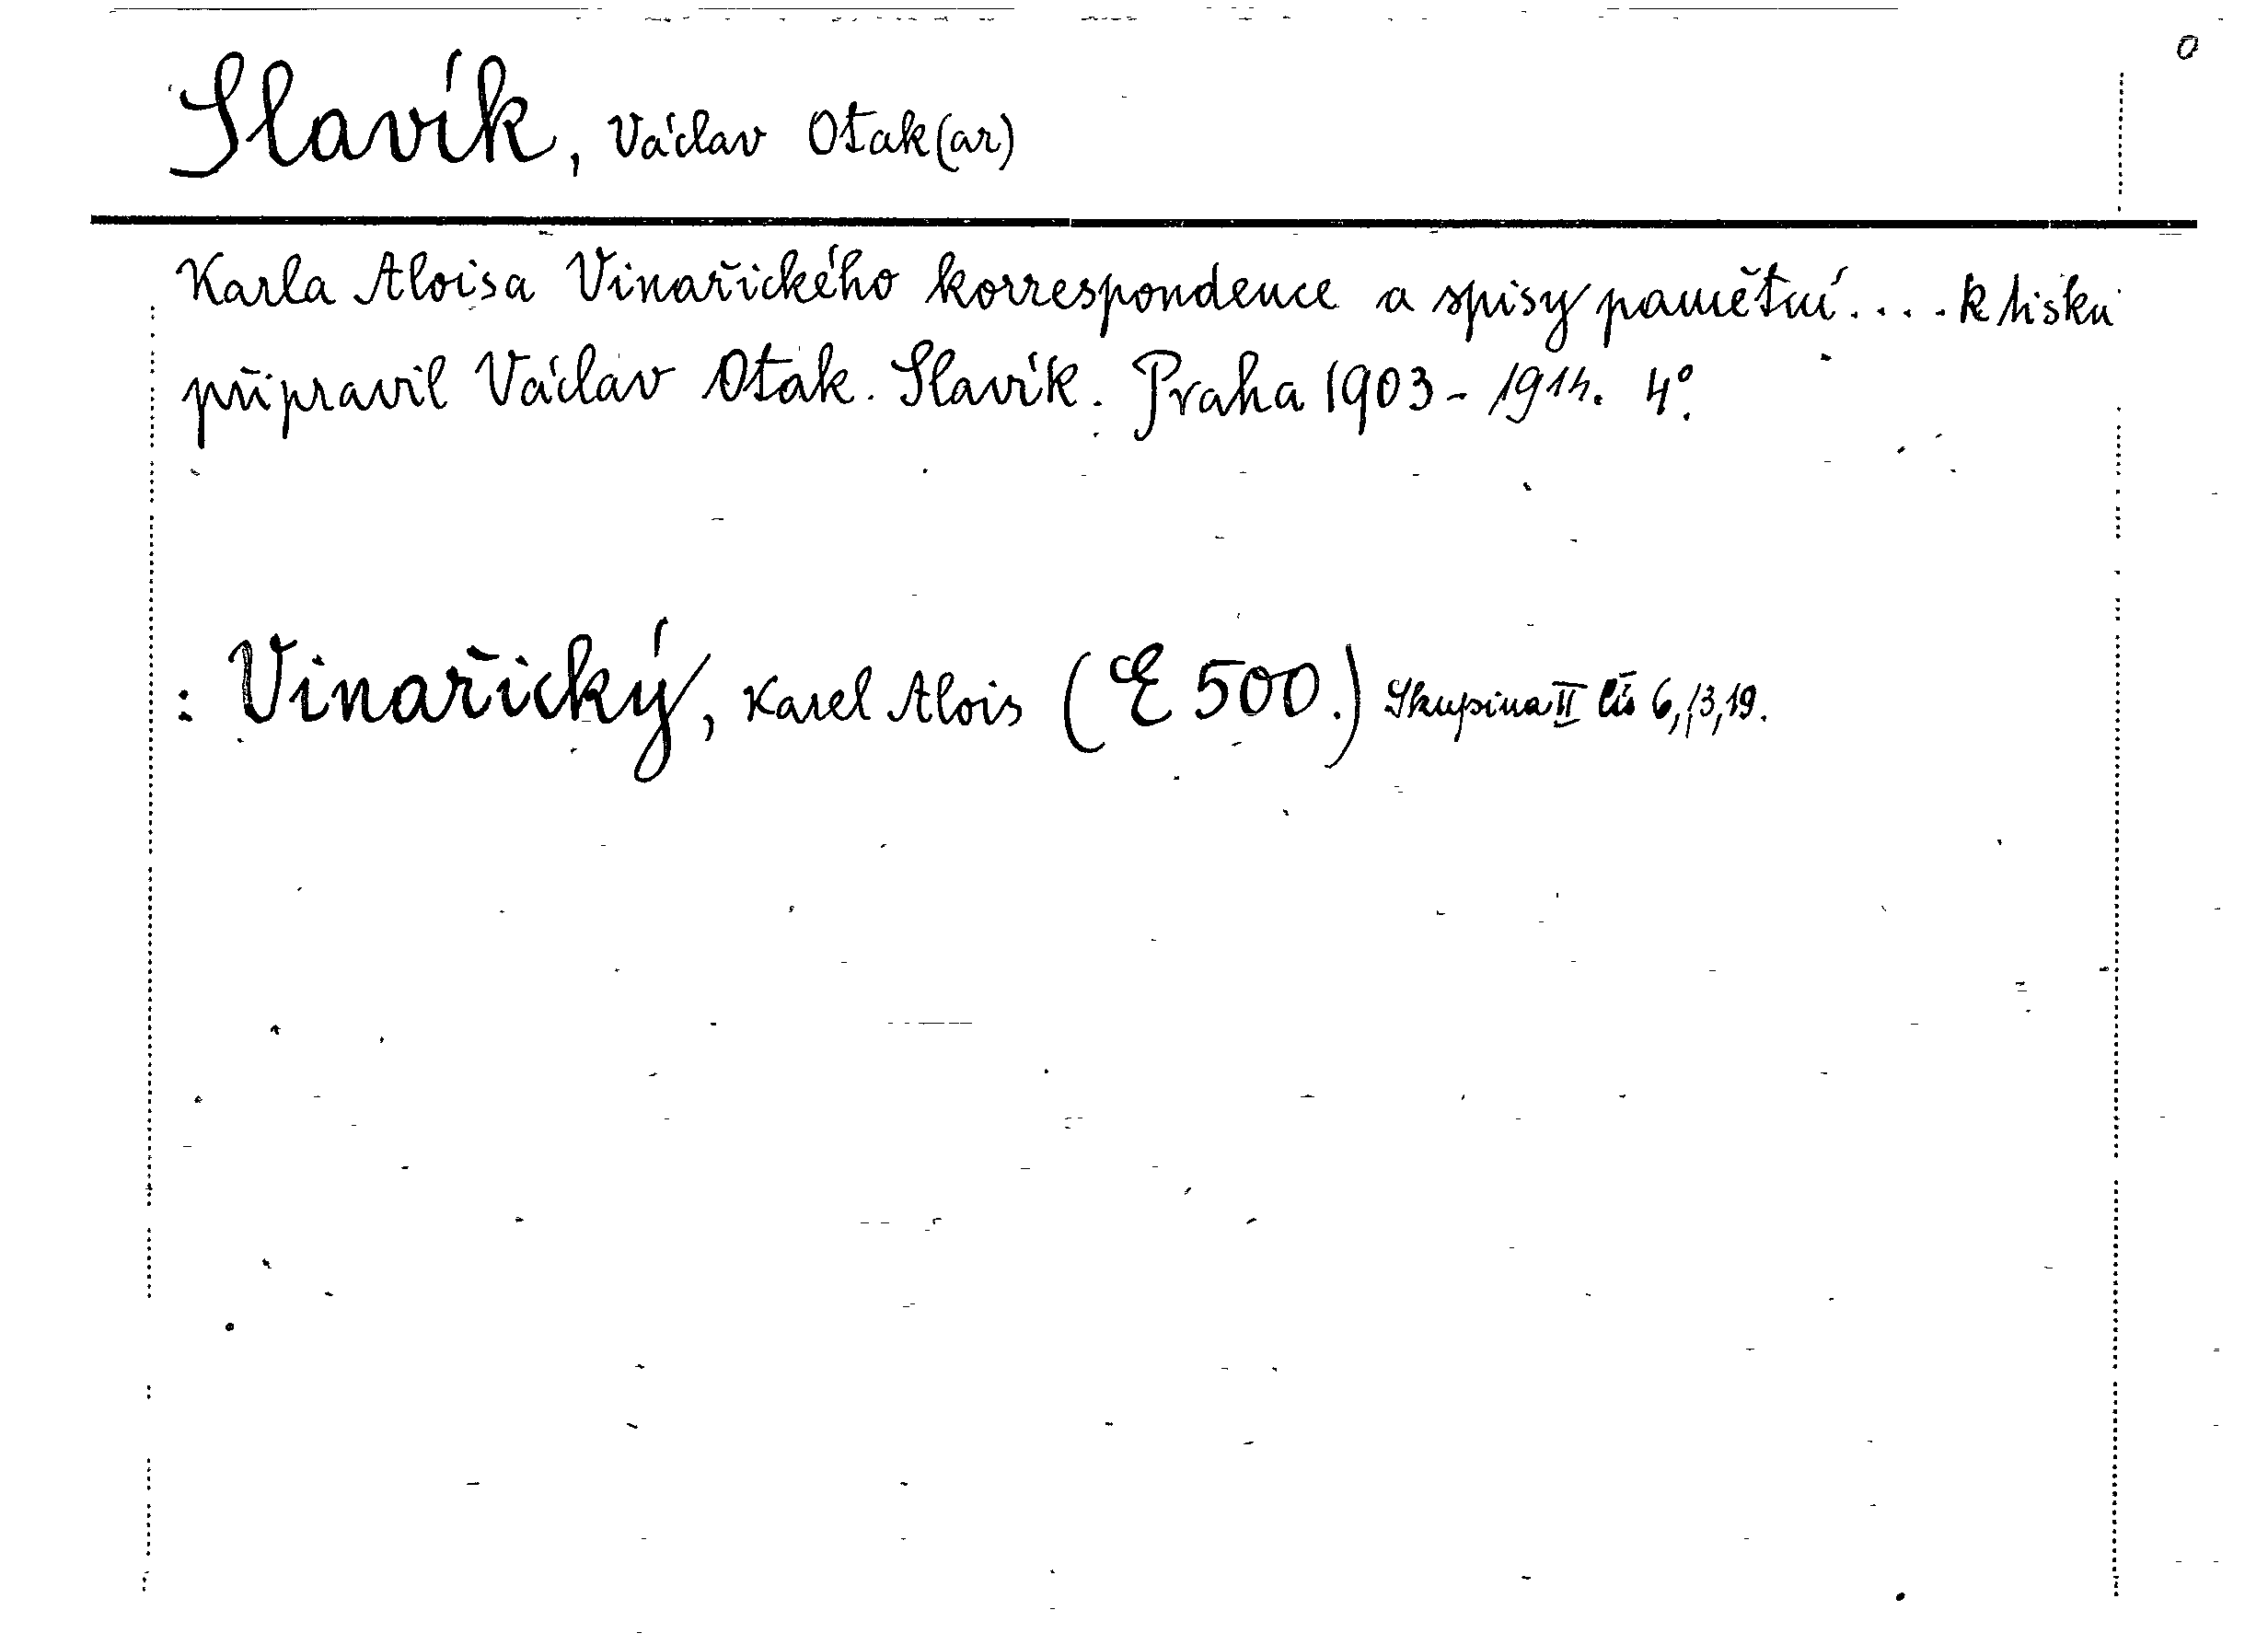 O
Slavík, Václav Otak(ar)
Karla Aloisa Vinařického korrespondence a spisy pamětní.... k tisku
připravil Václav Otak. Slavík. Praha 1903-1914. 4°.
: Vinařický, Karel Alois (E 500.) Skupina II čís 6, 13, 19.